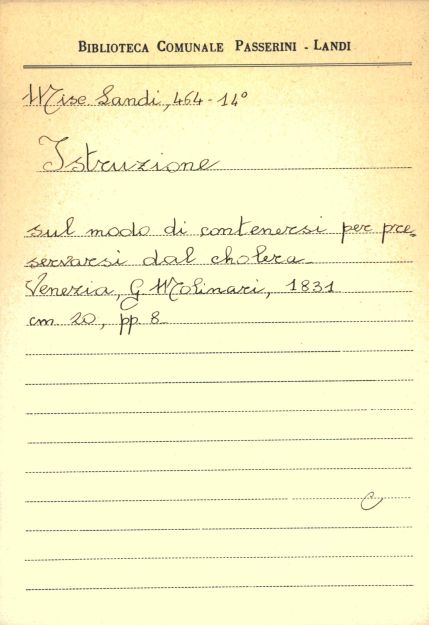 BIBLIOTECA COMUNALE PASSERINI - LANDI
Misc Landi, 464 - 14°
Istruzione
sul modo di contenersi per pre=
servarsi dal cholera
Venezia, G. Molinari, 1831
cm 20, pp. 8
C